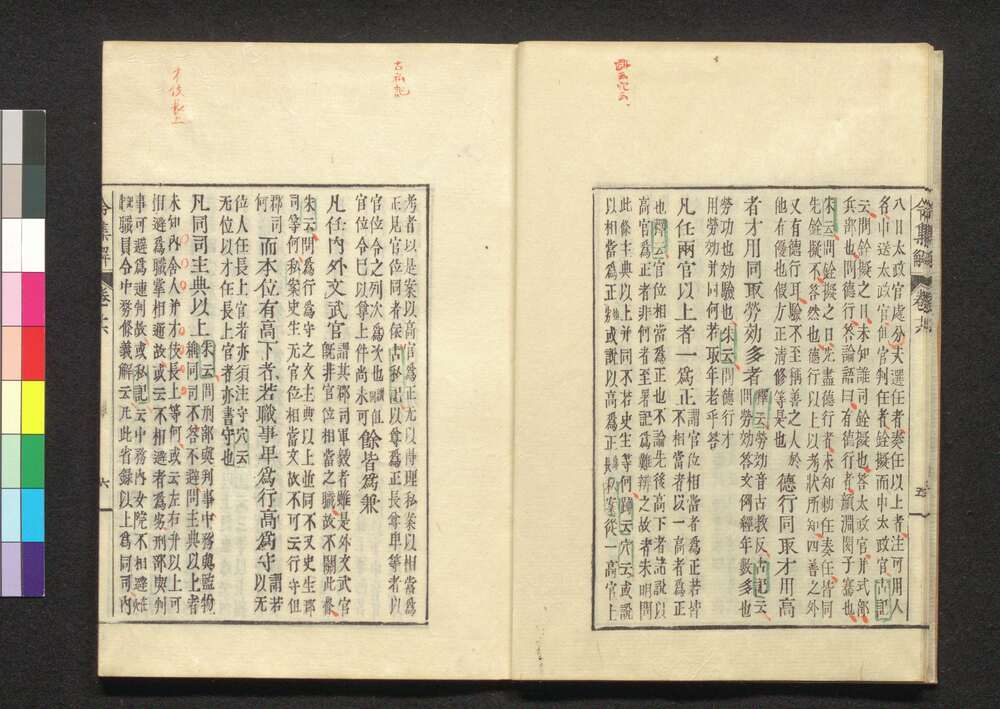 八日太政官處分夫選任者奏任以上者注可用人
名申送太政官但官判任者銓擬而申太政官古記
云問銓擬之日未知誰司銓擬也答太政官并式部
兵部也問德行答論語曰有德行者顏淵閔子騫也
朱云問銓擬之日先盡德行者未知勅任奏任皆同
先銓擬不答然也德行以上以考狀所知四善之外
又有德行耳驗不至稱善之人於
他有優也假方正清修等是也
德行同取才用高
者才用同取勞效多者
釋云勞効音古教反古記云
問勞効答文例經年數多也
勞功也効驗也朱云問德行才
用勞効并同何若取年老乎答
凡任兩官以上者一爲正
謂官位相當者爲正若皆
不相當者以一高者爲正
也釋云官位相當爲正也不論先後高下者諸說以
高官爲正者非何者至署記爲難辨之故者朱明問
此條主典以上并同不若史生等何師云穴云或說
以相當爲正
考者以是案以高官爲正无以傳理私案以相當爲
正見官位同者依古私記以尊爲正長卑等者以
官位令之列次爲次也
官位令巳以尊上件尚未可
餘皆爲兼
凡任內外文武官
謂其郡司軍毅者雖是外文武官
既非官位相當之職故不關此條
朱云問爲行爲守之文主典以上並同不又史生郡
司等何私案史生无官位相當文故不可云行守但
郡司
何
而本位有高下者若職事卑爲行高爲守
謂若
以无
位人任長上官者亦須注守穴云
无位以才任長上官者亦書守也
凡同司主典以上
朱云問刑部與判事中務與監物
繩同司不答不避問主典以上者
未知內舍人并才伎長上等何或云左右并以上可
相避爲職掌相通故或云不相避者爲宛刑部與判
事可避爲連判故或私記云中務內女院不相避
職員令中務條義解云凡此省錄以上爲同司內
令集解
卷十六
五
令集解
卷十六
六
古私記
才伎長上